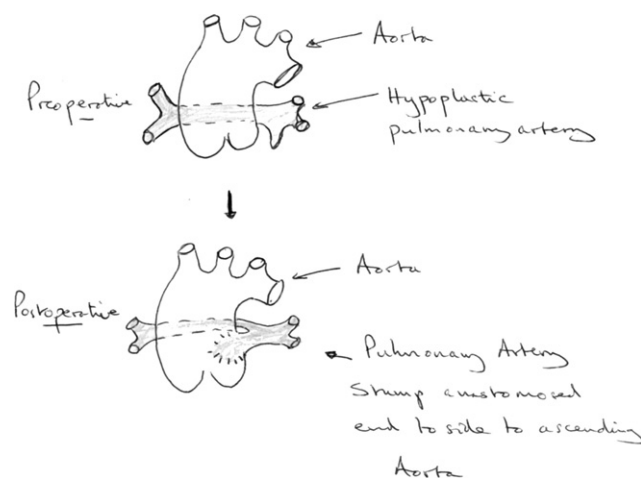 Aorta
Preoperative
Hypoplastic
pulmonary artery
Aorta
Postoperative
Pulmonary Artery
Stump anastomosed
end to side to ascending
Aorta